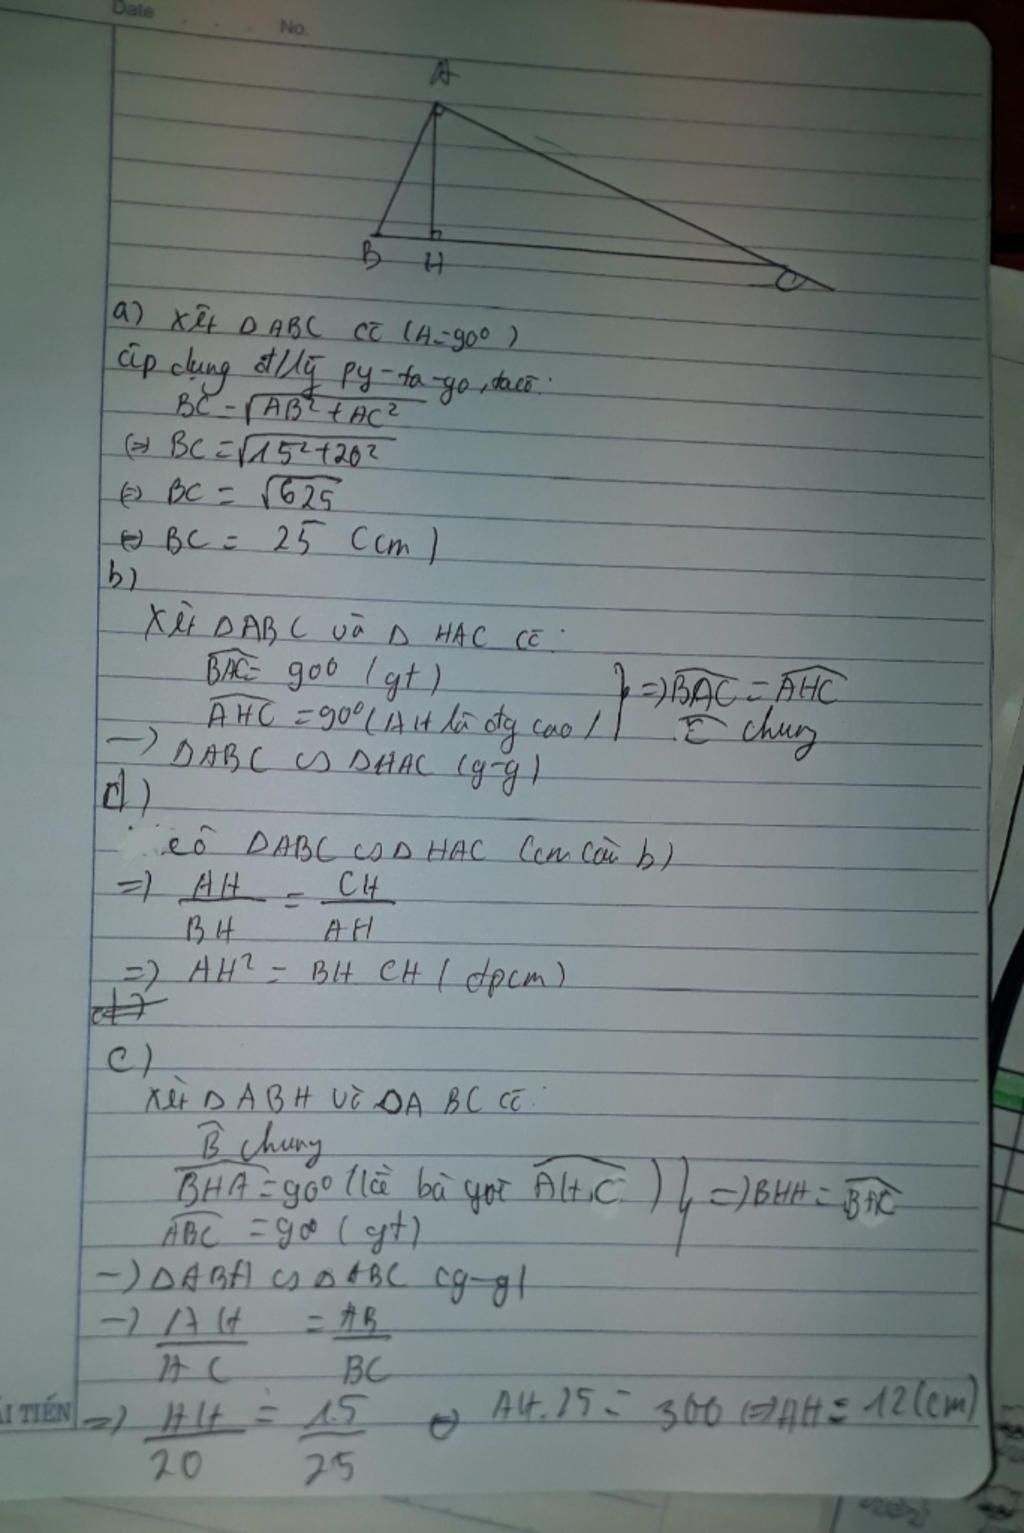 Date . . . No.
A
B H C
a) xét ΔABC có (A=90°)
áp dụng đ/lý py-ta-go, ta có:
BC = √AB² + AC²
(=) BC = √15²+20²
(=) BC = √625
(=) BC = 25 (cm)
b)
Xét ΔABC và Δ HAC có:
BAC = 90° (gt)
AHC = 90° (AH là đg cao) } =) BAC = AHC
C chung
=) ΔABC ∽ ΔHAC (g-g)
d)
có ΔABC ∽ Δ HAC (cm câu b)
=) AH/BH = CH/AH
=) AH² = BH CH (đpcm)
c)
Xét ΔABH và ΔABC có:
B chung
BHA = 90° (kề bù góc AHC) } =) BHA = BAC
ABC = 90° (gt)
=) ΔABH ∽ ΔABC (g-g)
=) AH/AC = AB/BC
ẢI TIẾN
=) AH/20 = 15/25 (=) AH.25 = 300 (=) AH = 12 (cm)